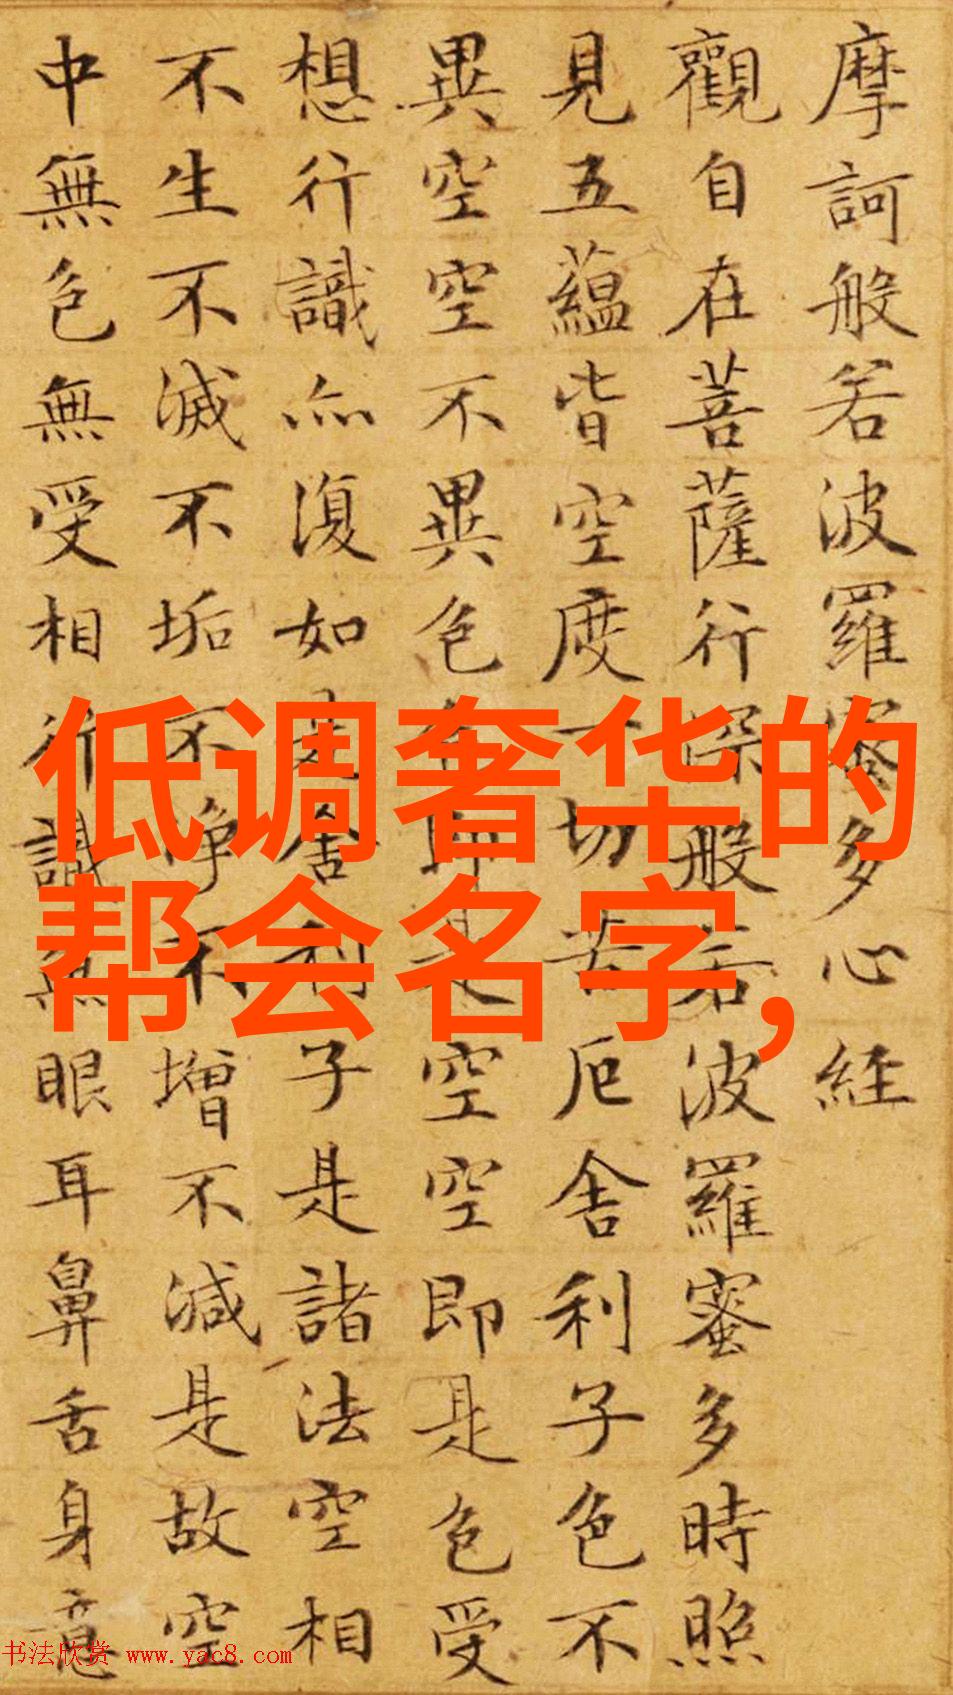 摩訶般若波羅蜜多心經
觀自在菩薩行深般若波羅蜜多時照
見五蘊皆空度一切苦厄舍利子色不
異空空不異色色即是空空即是色受
想行識亦復如是舍利子是諸法空相
不生不滅不垢不淨不增不減是故空
中無色無受相行識無眼耳鼻舌身意
低调奢华的
帮会名字,
书法欣赏 www.yac8.com